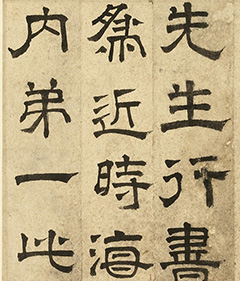 先生行書
為近時海
内弟一此